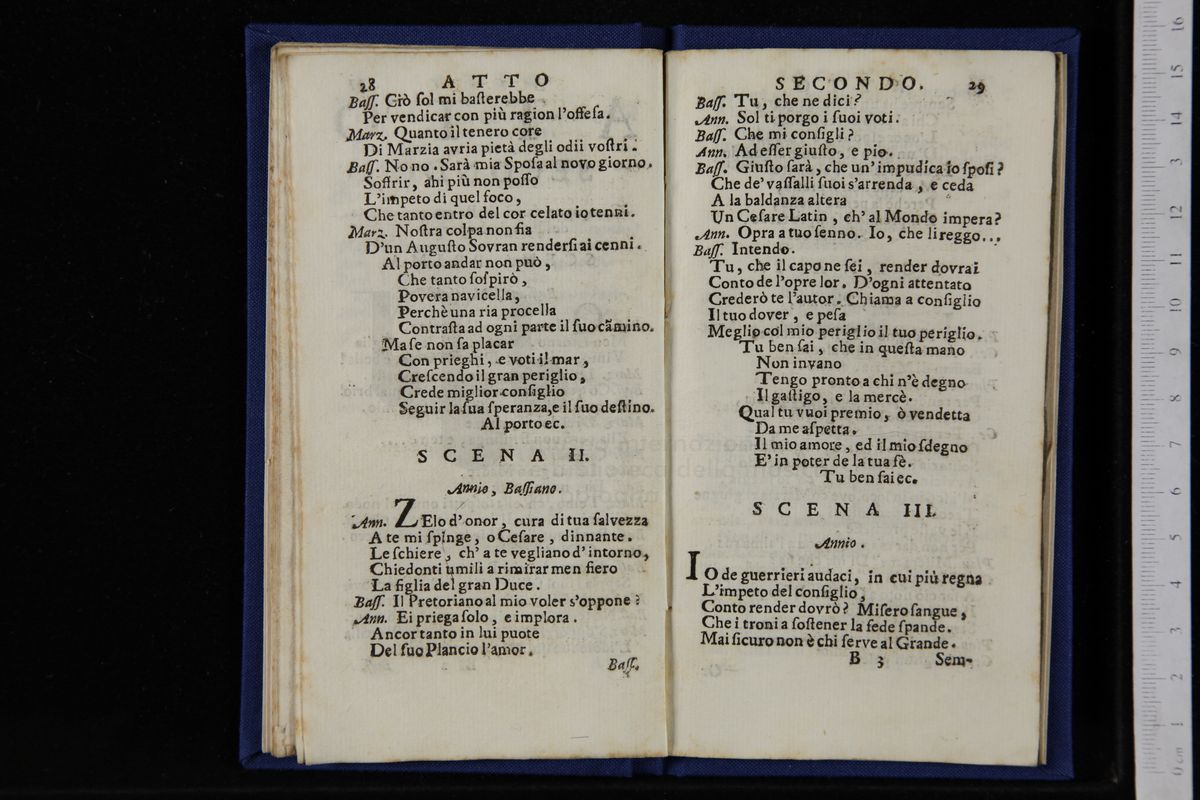 28 ATTO
Baſſ. Ciò ſol mi baſterebbe
Per vendicar con più ragion l'offeſa.
Marz. Quanto il tenero core
Di Marzia avria pietà degli odii voſtri.
Baſſ. No no. Sarà mia Spoſa al novo giorno.
Soffrir, ahi più non poſſo
L'impeto di quel foco,
Che tanto entro del cor celato io tenni.
Marz. Noſtra colpa non ſia
D'un Auguſto Sovran renderſi ai cenni.
Al porto andar non può,
Che tanto ſoſpirò,
Povera navicella,
Perchè una ria procella
Contraſta ad ogni parte il ſuo cãmino.
Ma ſe non ſa placar
Con prieghi, e voti il mar,
Creſcendo il gran periglio,
Crede miglior conſiglio
Seguir la ſua ſperanza, e il ſuo deſtino.
Al porto ec.
SCENA II.
Annio, Baſſiano.
Ann. ZElo d'onor, cura di tua ſalvezza
A te mi ſpinge, o Ceſare, dinnante.
Le ſchiere, ch' a te vegliano d' intorno,
Chiedonti umili a rimirar men fiero
La figlia del gran Duce.
Baſſ. Il Pretoriano al mio voler s'oppone?
Ann. Ei priega ſolo, e implora.
Ancor tanto in lui puote
Del ſuo Plancio l'amor.
Baſſ.
SECONDO. 29
Baſſ. Tu, che ne dici?
Ann. Sol ti porgo i ſuoi voti.
Baſſ. Che mi conſigli?
Ann. Ad eſſer giuſto, e pio.
Baſſ. Giuſto ſarà, che un' impudica io ſpoſi?
Che de' vaſſalli ſuoi s'arrenda, e ceda
A la baldanza altera
Un Ceſare Latin, ch' al Mondo impera?
Ann. Opra a tuo ſenno. Io, che li reggo...
Baſſ. Intendo.
Tu, che il capo ne ſei, render dovrai
Conto de l'opre lor. D'ogni attentato
Crederò te l'autor. Chiama a conſiglio
Il tuo dover, e peſa
Meglio col mio periglio il tuo periglio.
Tu ben ſai, che in queſta mano
Non invano
Tengo pronto a chi n'è degno
Il gaſtigo, e la mercè.
Qual tu vuoi premio, ò vendetta
Da me aſpetta.
Il mio amore, ed il mio ſdegno
E' in poter de la tua fè.
Tu ben ſai ec.
SCENA III.
Annio.
IO de guerrieri audaci, in cui più regna
L'impeto del conſiglio,
Conto render dovrò? Miſero ſangue,
Che i troni a ſoſtener la fede ſpande.
Mai ſicuro non è chi ſerve al Grande.
B 3 Sem-